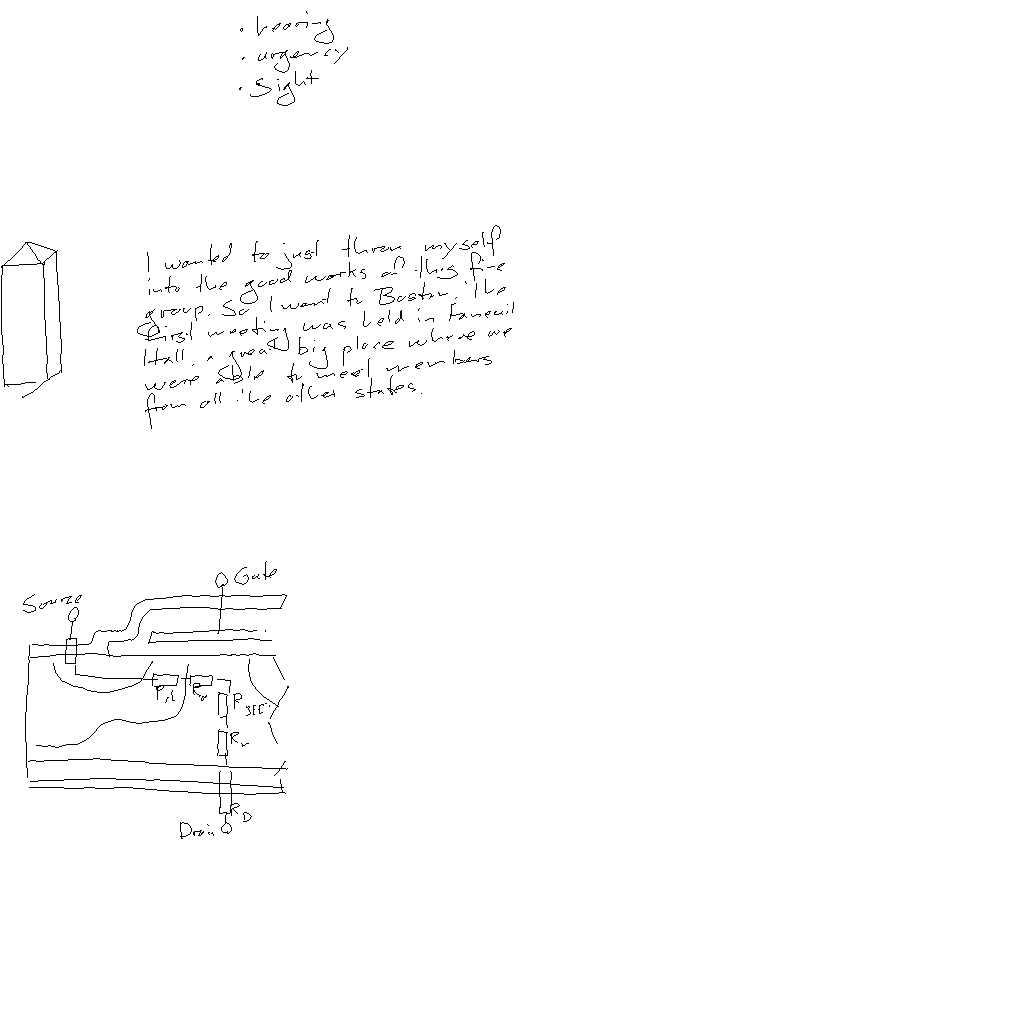 · hearing
· urgency
· Sight
I wanted to just throw myself
into the good works of this fine
group. So I went to Boston. The
first meeting was held in Faneuil
Hall, a great big place where we
were able to meet members
from all the other states.
Gate
Source
R
R
R
R
Drain